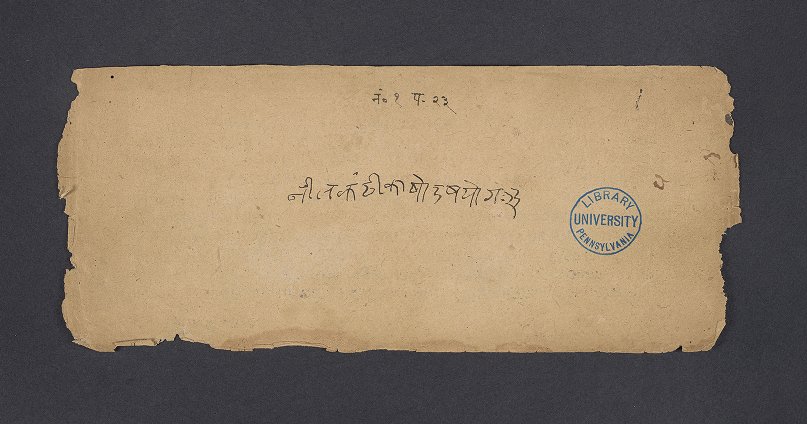 नं० १ प. २३
नीलकंठीकाषोडषयोग
LIBRARY
UNIVERSITY
PENNSYLVANIA